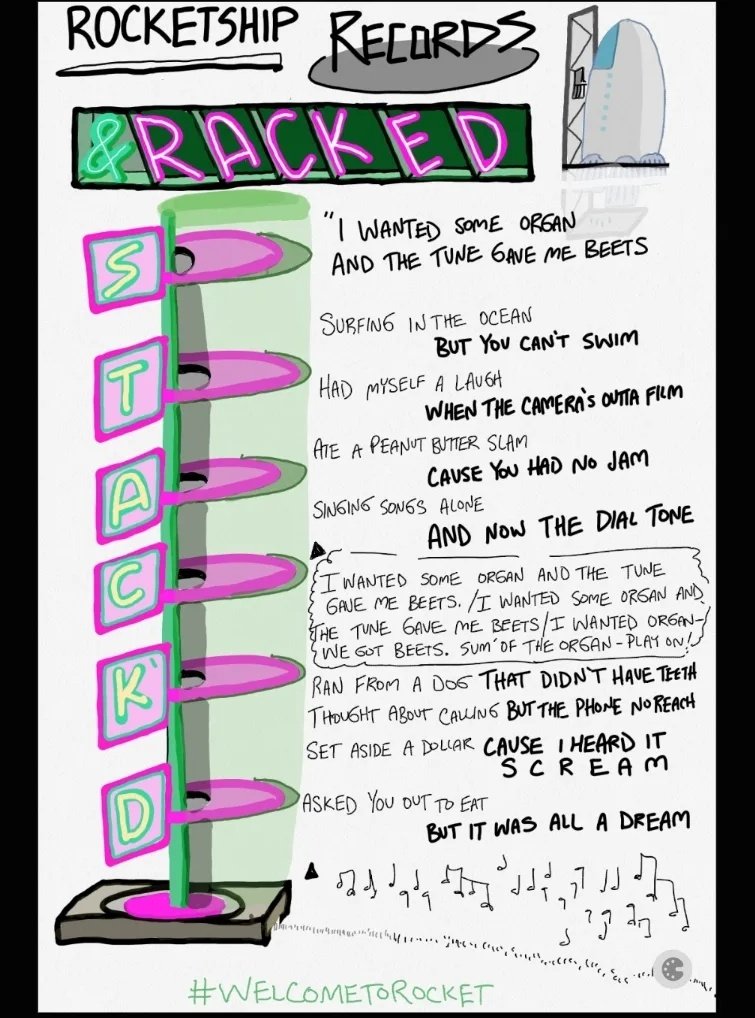 ROCKETSHIP RECORDS
&RACKED
STACK'D
"I WANTED SOME ORGAN
AND THE TUNE GAVE ME BEETS
SURFING IN THE OCEAN
BUT YOU CAN'T SWIM
HAD MYSELF A LAUGH
WHEN THE CAMERA'S OUTTA FILM
ATE A PEANUT BUTTER SLAM
CAUSE YOU HAD NO JAM
SINGING SONGS ALONE
AND NOW THE DIAL TONE
I WANTED SOME ORGAN AND THE TUNE
GAVE ME BEETS. /I WANTED SOME ORGAN AND
THE TUNE GAVE ME BEETS/I WANTED ORGAN-
WE GOT BEETS. SUM' OF THE ORGAN - PLAY ON!
RAN FROM A DOG THAT DIDN'T HAVE TEETH
THOUGHT ABOUT CALLING BUT THE PHONE NO REACH
SET ASIDE A DOLLAR CAUSE I HEARD IT
SCREAM
ASKED YOU OUT TO EAT
BUT IT WAS ALL A DREAM
#WELCOMETOROCKET